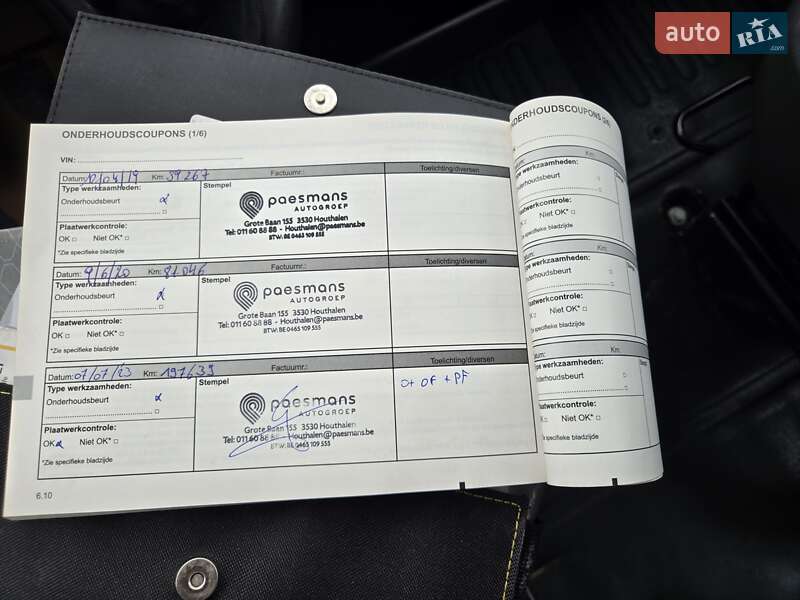 auto RIA.com
ONDERHOUDSCOUPONS (1/6)
VIN:
Datum: 10/04/19 Km: 39267 Factuurnr.: Toelichting/diversen
Type werkzaamheden: Stempel
Onderhoudsbeurt
paesmans
AUTOGROEP
Grote Baan 155 3530 Houthalen
Tel: 011 60 88 88 - Houthalen@paesmans.be
BTW: BE 0463 109 555
Plaatwerkcontrole:
OK □ Niet OK* □
*Zie specifieke bladzijde
Datum: 9/6/20 Km: 81046 Factuurnr.: Toelichting/diversen
Type werkzaamheden: Stempel
Onderhoudsbeurt
paesmans
AUTOGROEP
Grote Baan 155 3530 Houthalen
Tel: 011 60 88 88 - Houthalen@paesmans.be
BTW: BE 0463 109 555
Plaatwerkcontrole:
OK □ Niet OK* □
*Zie specifieke bladzijde
Datum: 07/07/23 Km: 197639 Factuurnr.: Toelichting/diversen
Type werkzaamheden: Stempel
Onderhoudsbeurt
O+ OF + PF
paesmans
AUTOGROEP
Grote Baan 155 3530 Houthalen
Tel: 011 60 88 88 - Houthalen@paesmans.be
BTW: BE 0463 109 555
Plaatwerkcontrole:
OK Niet OK* □
*Zie specifieke bladzijde
6.10
NDERHOUDSCOUPONS
Datum: Km:
Type werkzaamheden:
Onderhoudsbeurt
Plaatwerkcontrole:
OK □ Niet OK* □
*Zie specifieke bladzijde
Datum: Km:
Type werkzaamheden:
Onderhoudsbeurt
Plaatwerkcontrole:
OK □ Niet OK* □
*Zie specifieke bladzijde
Datum: Km:
Type werkzaamheden:
Onderhoudsbeurt
Plaatwerkcontrole:
OK □ Niet OK* □
*Zie specifieke bladzijde